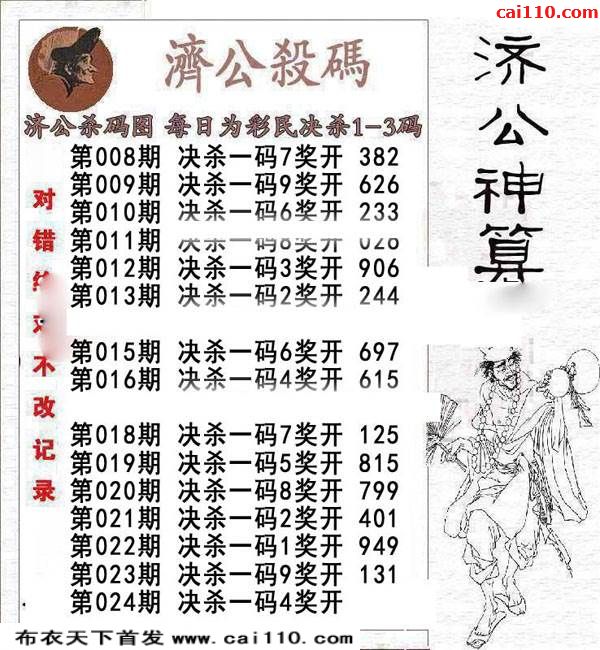 cai110.com
濟公殺碼
济公杀码图 每日为彩民决杀1-3码
第008期 决杀一码7奖开 382
第009期 决杀一码9奖开 626
第010期 决杀一码6奖开 233
第011期 决杀一码8奖开 028
第012期 决杀一码3奖开 906
第013期 决杀一码2奖开 244
第015期 决杀一码6奖开 697
第016期 决杀一码4奖开 615
第018期 决杀一码7奖开 125
第019期 决杀一码5奖开 815
第020期 决杀一码8奖开 799
第021期 决杀一码2奖开 401
第022期 决杀一码1奖开 949
第023期 决杀一码9奖开 131
第024期 决杀一码4奖开
对错 不改记录
济公神算
布衣天下首发 www.cai110.com